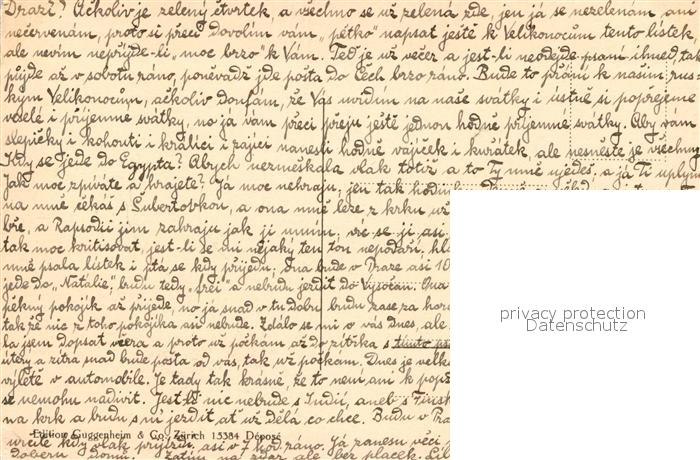 Drazí! Ačkoliv je zelený čtvrtek, a všechno se už zelená zde, jen já se nezelenám, ani
nečervenám, proto si přeci dovolím vám „pětko" napsat ještě k Velikonocům tento lístek,
ale nevím nepřijde-li „moc brzo" k Vám. Teď je už večer a jest-li neodejde psaní ihned, tak
přijde až v sobotu ráno, poněvadž jde pošta do Čech brzo ráno. Bude to přání k našim rus-
kým Velikonocům, ačkoliv doufám, že Vás uvidím na naše svátky i ústně si popřejeme
veselé i příjemné svátky, no já vám přeci přeju ještě jednou hodně příjemné svátky. Aby vám
slepičky i kohouti i králíci i zajíci nanesli hodně vajíček i kuřátek, ale nesnězte je všechny
Kdy se jede do Egypta? Abych nezmeškala vlak totiž a to Ty mně uјedeš, a já Ti uplynu
Jak moc zpíváte a hrajete? Já moc nehraju, jen tak
na mně čekáš s Lubertovkou, a ona mně leze z krku už
bře, a Rapsodii jim zahraju jak ji umím, vže se ji asi
tak moc kritisovat, jest-li se mi nějaký ten ton nepodaří,
mně psala lístek i ptá se kdy přijedu; ona bude v Praze asi 10
jede do „Natálie", budu tedy „frei" a nebudu jezdit do Vysočan. Ona
pěkný pokojík až přijede, no já snad v tu dobu budu zase za
tak že nic z toho pokojíka asi nebude. Zdálo se mi o vás dnes, ale
la jsem dopsat včera a proto už počkám až do zítřka s
úterý a zítra snad bude pošta od vás, tak už počkám. Dnes je
výletě v automobile. Je tady tak krásně, že to není ani k
se nemohu nadívit. Jest-li nic nebude s Indií, aneb
na krk a budu s ní jezdit ať už dělá co chce. Budu v
Edition Guggenheim & Co., Zürich 15384 Déposé
určitě kdy vlak přijíždí, asi v 7 hod ráno. Já zanesu věci
domů. Zatím na zdar ale bez placek.
privacy protection
Datenschutz